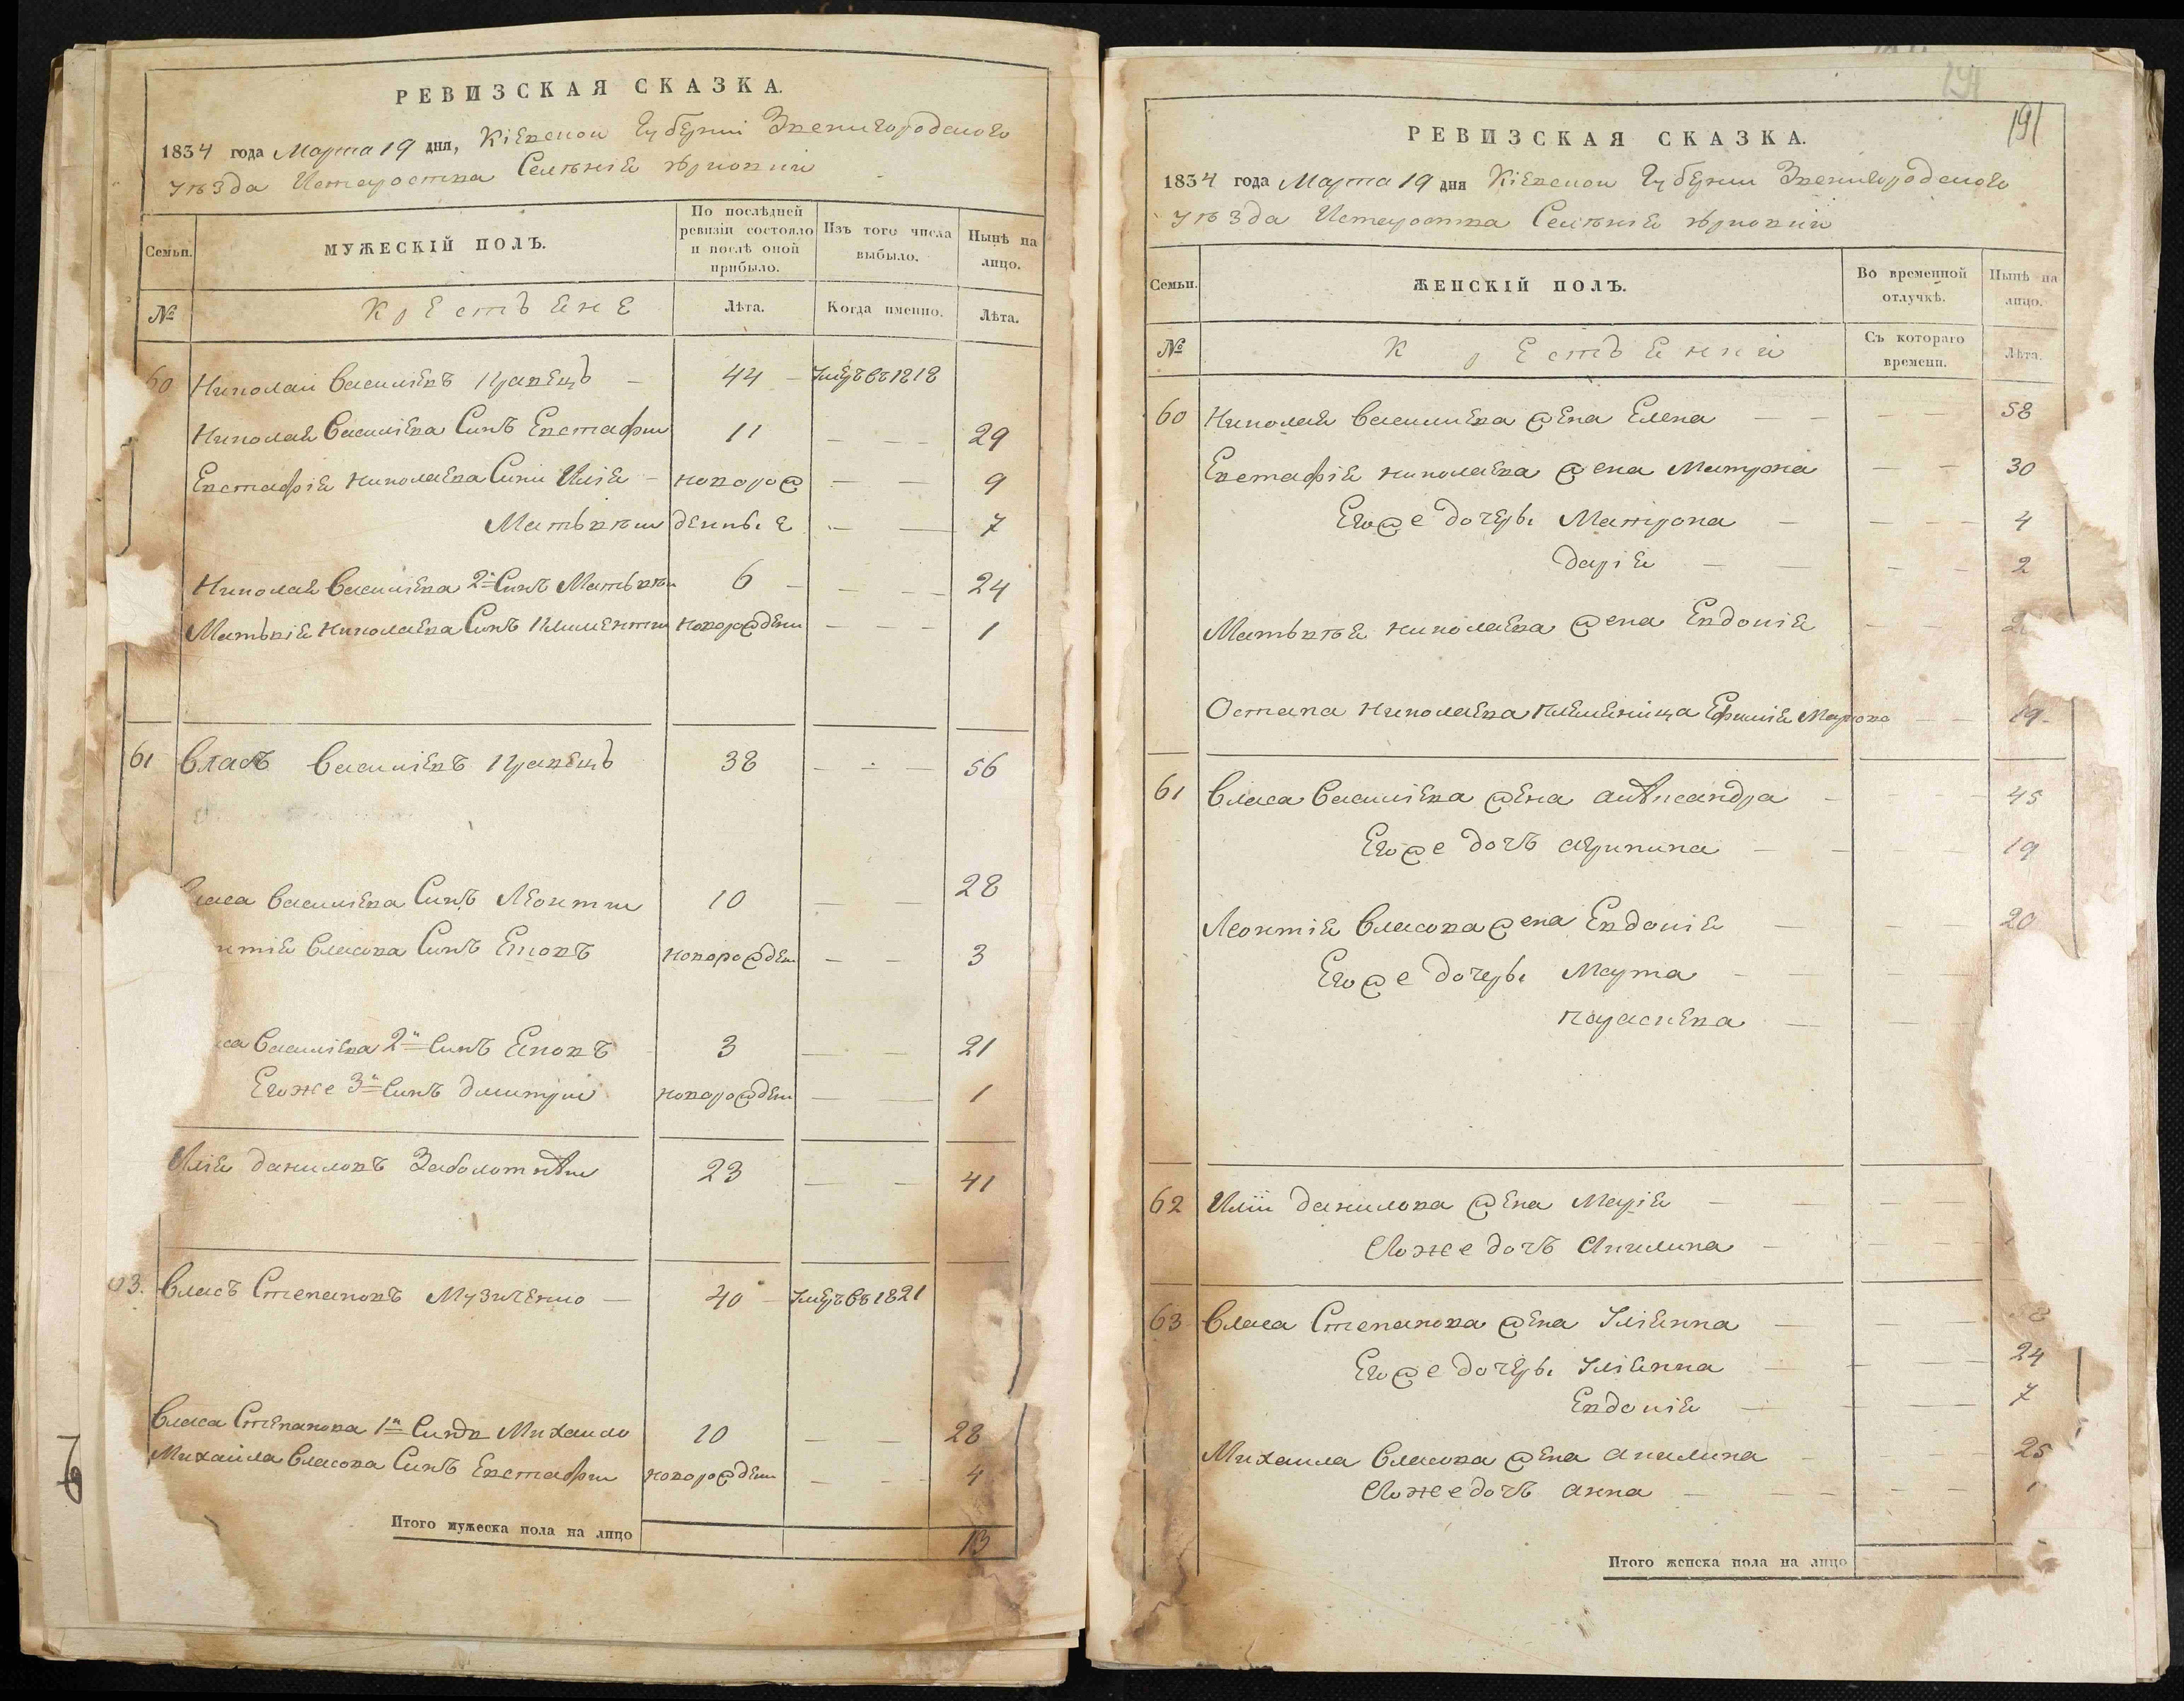 РЕВИЗСКАЯ СКАЗКА.
1834 года Марта 19 дня, Кіевской Губерніи Звенигородского
уѣзда Селѣніе
Семьи. МУЖЕСКІЙ ПОЛЪ. По послѣдней ревизіи состояло и послѣ оной прибыло. Изъ того числа выбыло. Нынѣ на лицо.
№ Крестъяне Лѣта. Когда именно. Лѣта.
60 Николай Василіевъ Кравецъ — 44 — Умеръ въ 1818
Николая Василіева Синъ Евстафий 11 — — — 29
Евстафія Николаева Сини Илія — новорож — — 9
Матьвѣи денные — — 7
Николая Василіева 2й Синъ Матьвѣи 6 — — — — 24
Матьвія Николаева Синъ Климентіи новорожден — — — 1
61 Власъ Василіевъ Кравецъ 38 — — — 56
Василіева Синъ Леонтии 10 — — 28
Власова Синъ новорожден — — 3
Василіева 2й Синъ 3 — — 21
Егоже 3й Синъ Дмитрии новорожден — — 1
Илія Даниловъ Заболотнии 23 — — 41
63. Власъ Степановъ Музиченко — 40 — Умеръ въ 1821
Власа Степанова 1й Синъ Михаило 10 — 28
Михаила Власова Синъ Евстафии новорожден — — 4
Итого мужеска пола на лицо 13
191
РЕВИЗСКАЯ СКАЗКА.
1834 года Марта 19 дня Кіевской Губернии Звенигородского
уѣзда Селѣніе
Семьи. ЖЕНСКІЙ ПОЛЪ. Во временной отлучкѣ. Нынѣ на лицо.
№ Крестъянки Съ котораго времени. Лѣта.
60 Николая Василиева жена Елена — — — — 58
Евстафія Николаева жена Матрона — — 30
Егоже дочеры Матрона — — — — 4
Дарія — — — — 2
Матьвѣя Николаева жена Евдокія — —
Остапа Николаева племеница — — 19
61 Власа Василіева жена Александра — — — — 45
Егоже дочъ Агрипина — — — — 19
Леонтія Власова жена Евдокія — — — 20
Егоже дочеры Марта — — — —
Параскева — —
62 Иліи Данилова жена Марія — — — —
Егоже дочъ Ангилина — — —
63 Власа Степанова жена Уліянна — — —
Егоже дочеры Уліянна — — — 24
Евдокія — — — 7
Михаила Власова жена Ангилина — — — 25
Егоже дочъ Анна — — — — — 1
Итого женска пола на лицо